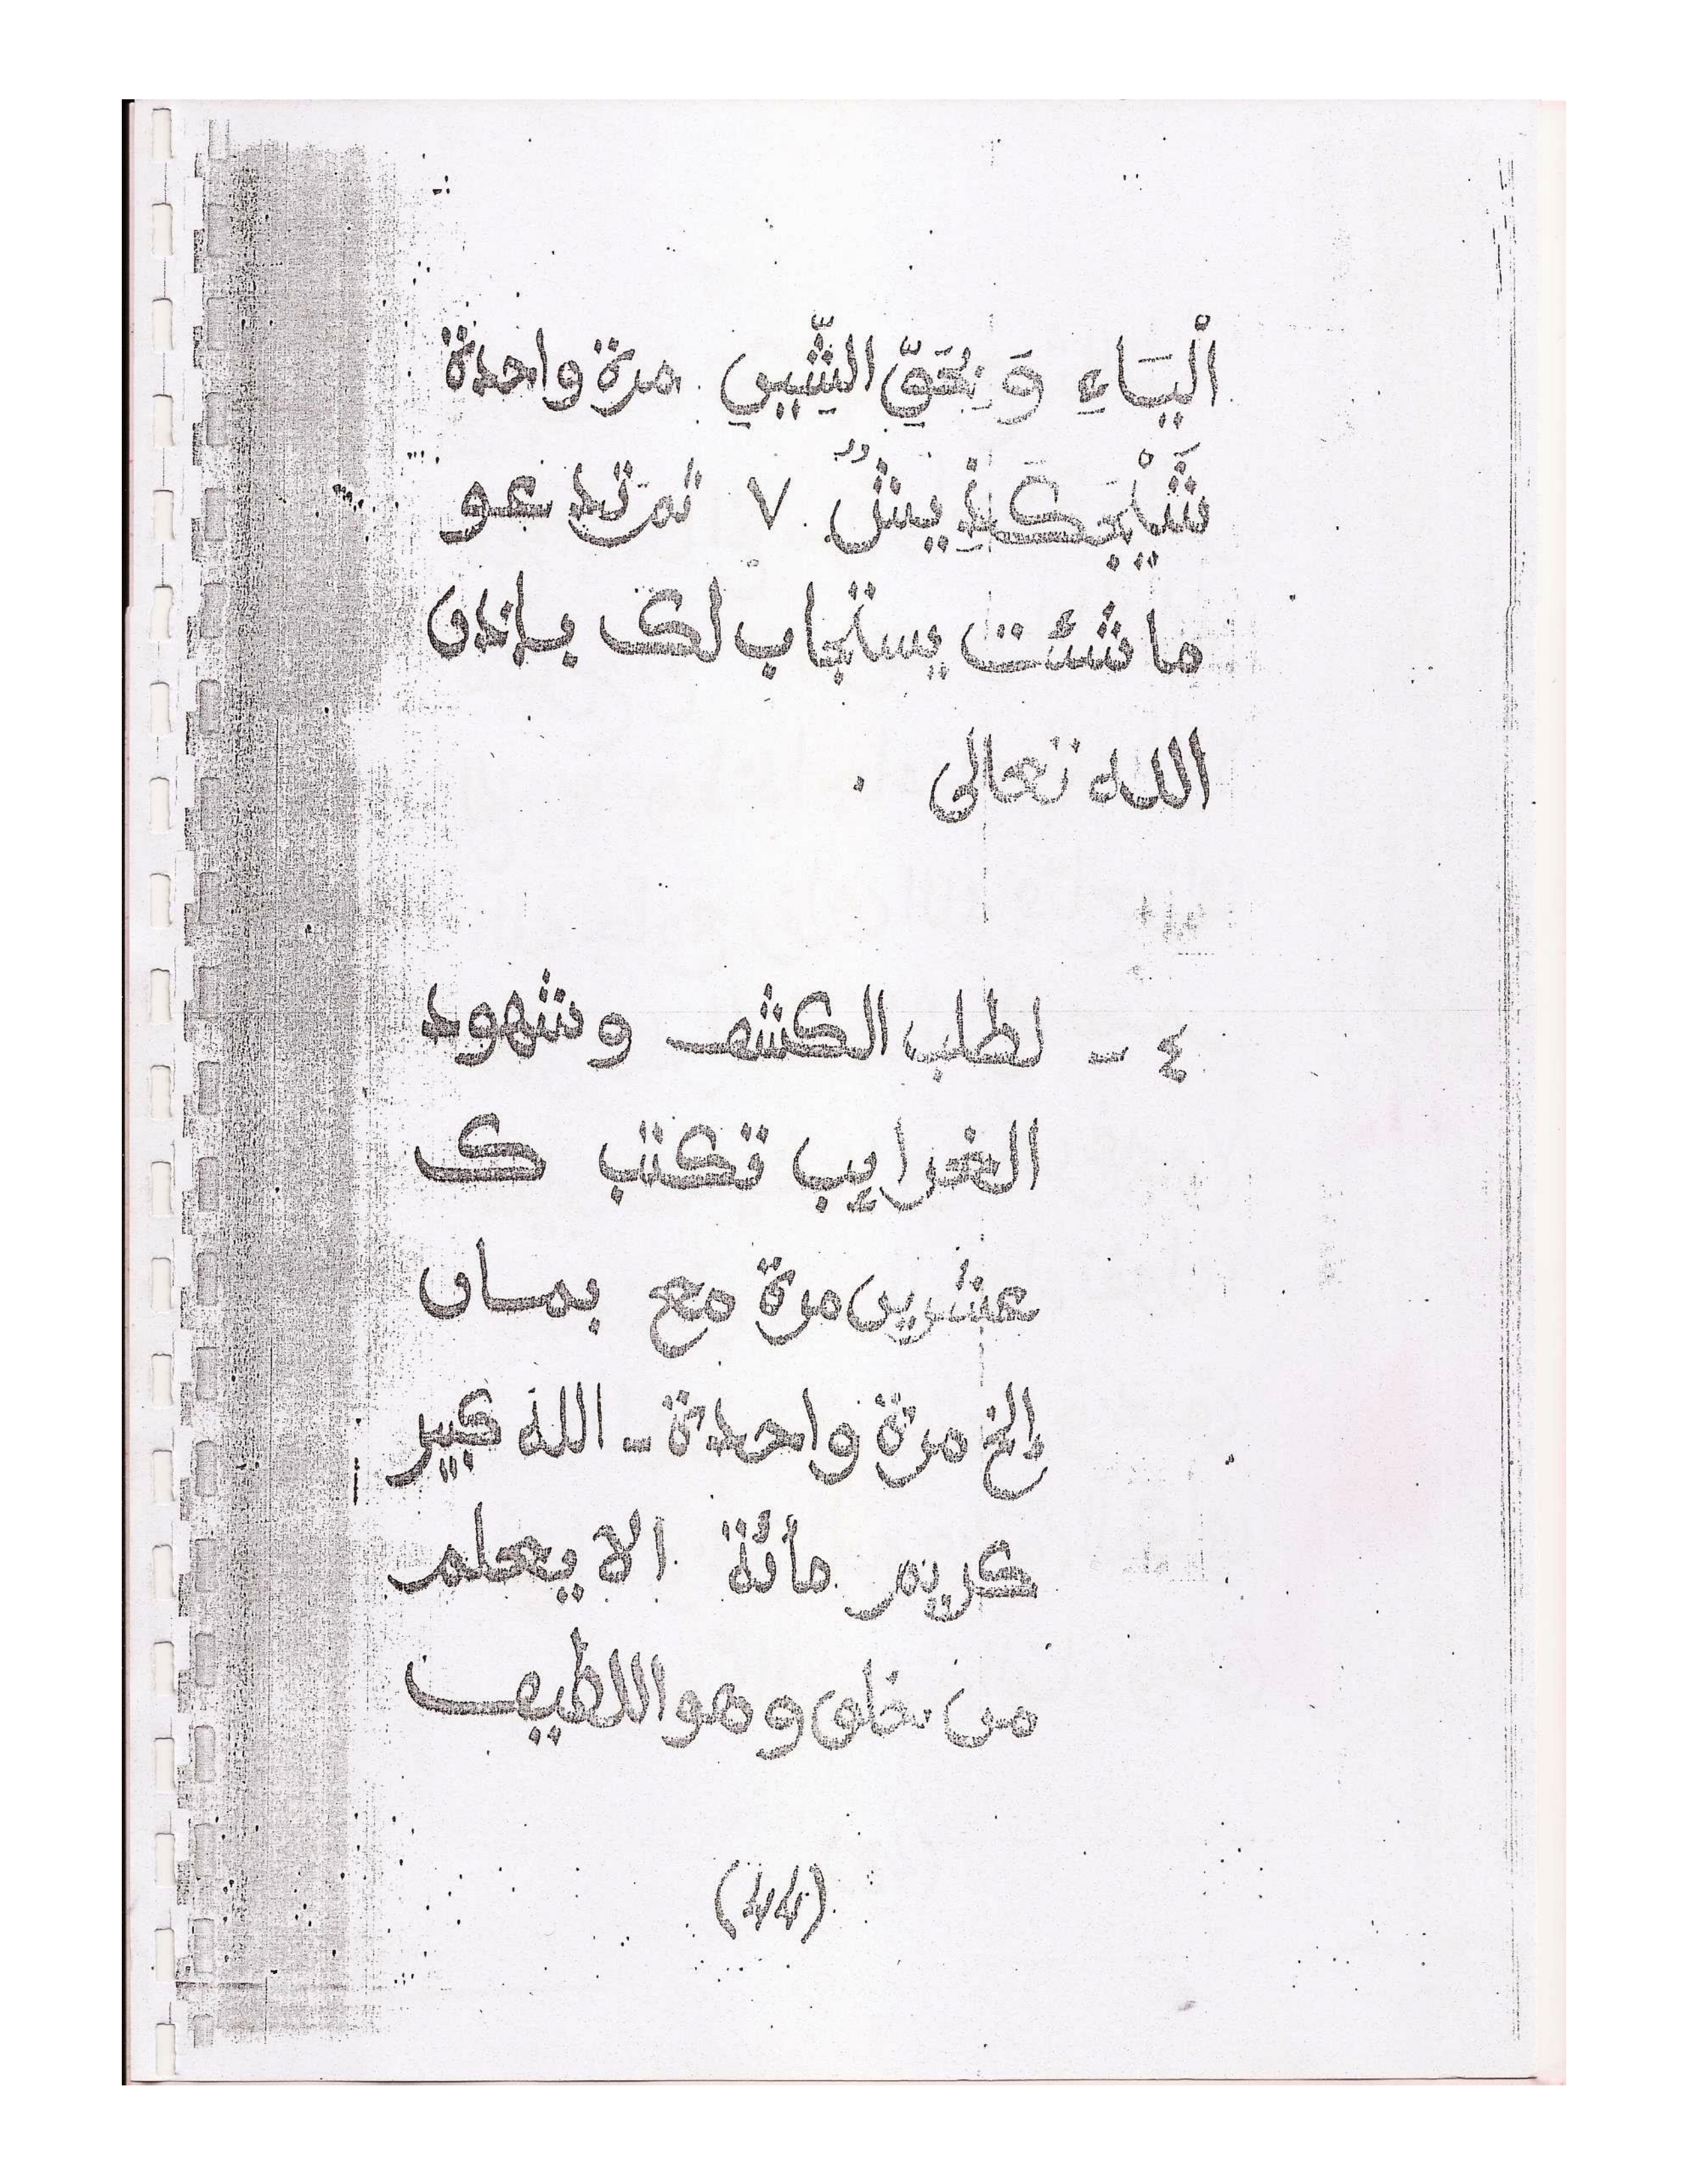 الْيَاءِ وَبِحَقِّ الشِّيبِي مرة واحدة
٧ ثم تدعو
ما شئت يستجاب لك بإذن
الله تعالى .
٤ - لطلب الكشف وشهود
الغرايب تكتب ك
عشرين مرة مع بمسان
إلخ مرة واحدة - الله كبير
كريم مائة الا يعلم
من خلق وهو اللطيف